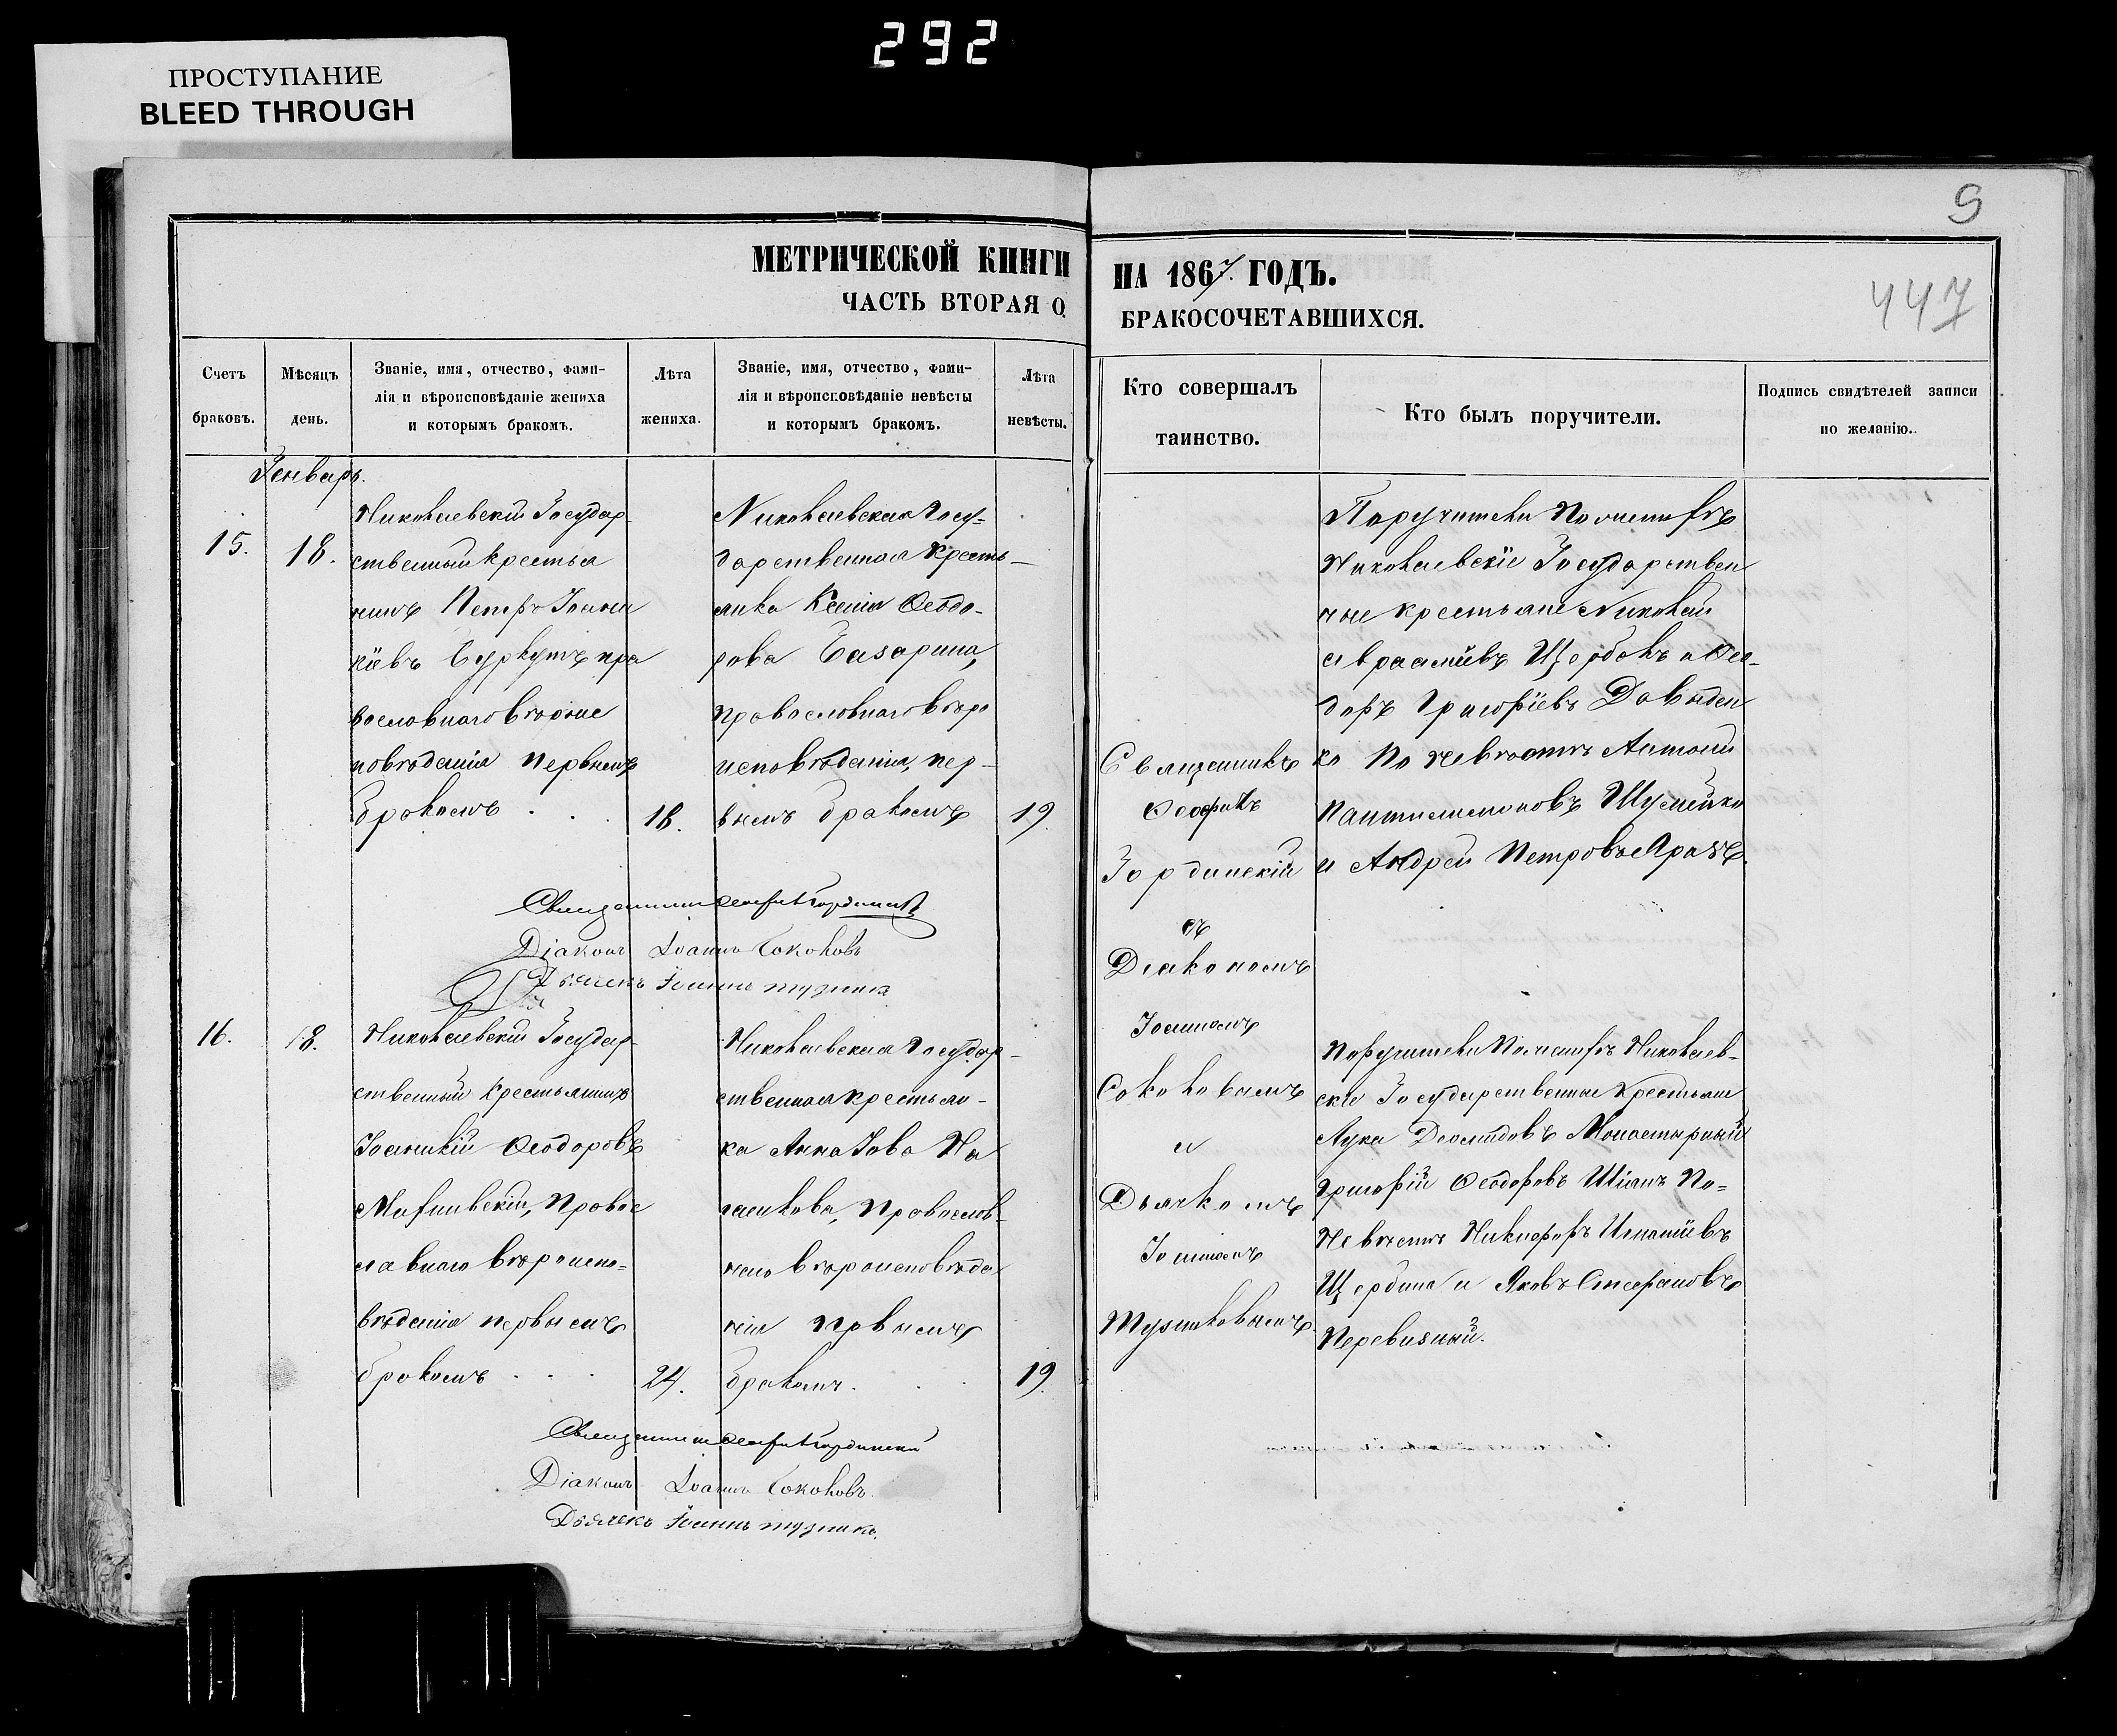 292
ПРОСТУПАНИЕ
BLEED THROUGH
9
МЕТРИЧЕСКОЙ КНИГИ
НА 1867 ГОДЪ.
447
ЧАСТЬ ВТОРАЯ О
БРАКОСОЧЕТАВШИХСЯ.
Счетъ
браковъ.
Мѣсяцъ
день.
Званіе, имя, отчество, фами-
лія и вѣроисповѣданіе жениха
и которымъ бракомъ.
Лѣта
жениха.
Званіе, имя, отчество, фами-
лія и вѣроисповѣданіе невѣсты
и которымъ бракомъ.
Лѣта
невѣсты.
Кто совершалъ
таинство.
Кто былъ поручители.
Подпись свидѣтелей записи
по желанію.
Генварь.
15.
18.
Николаевскій Государ-
ственный крестья
нинъ Петръ Іоанни
кіевъ пра
вославнаго вѣроис
повѣданія первымъ
бракомъ
18.
Николаевская Госу-
дарственная кресть-
янка Ксенія Ѳеодо-
рова Базарина,
православнаго вѣро
исповѣданія, пер-
вымъ бракомъ
19.
Священникъ
Ѳеофилъ
Гординскій
съ
Діакономъ
Іоанномъ
Соколовымъ
и
Дьячкомъ
Іоанномъ
Поручители По женихѣ
Николаевскіе Государствен
ные крестьяне Николай
Щербакъ и Ѳео-
доръ Григоріевъ Давыден
ко По невѣстѣ Антоній
Пантелимоновъ Шумейко
и Андрей Петровъ
Священникъ Ѳеофилъ Гординскій
Діаконъ Іоаннъ Соколовъ
Дьячекъ Іоаннъ
16.
18.
Николаевскій Государ-
ственный Крестьянинъ
Іоанникій Ѳеодоровъ
Православ
славнаго вѣроиспо-
вѣданія первымъ
бракомъ
24.
Николаевская Государ-
ственная крестьян-
ка Анна Іова На
Православ-
наго вѣроисповѣда
нія первымъ
бракомъ.
19.
Поручители По женихѣ Николаев-
скіе Государственные Крестьяне
Лука Діомидовъ Монастырный
Григорій Ѳеодоровъ По-
Невѣстѣ Никифоръ Игнатіевъ
Щербина и Яковъ Стефановъ
Перевизный.
Священникъ Ѳеофилъ Гординскій
Діаконъ Іоаннъ Соколовъ.
Дьячекъ Іоаннъ